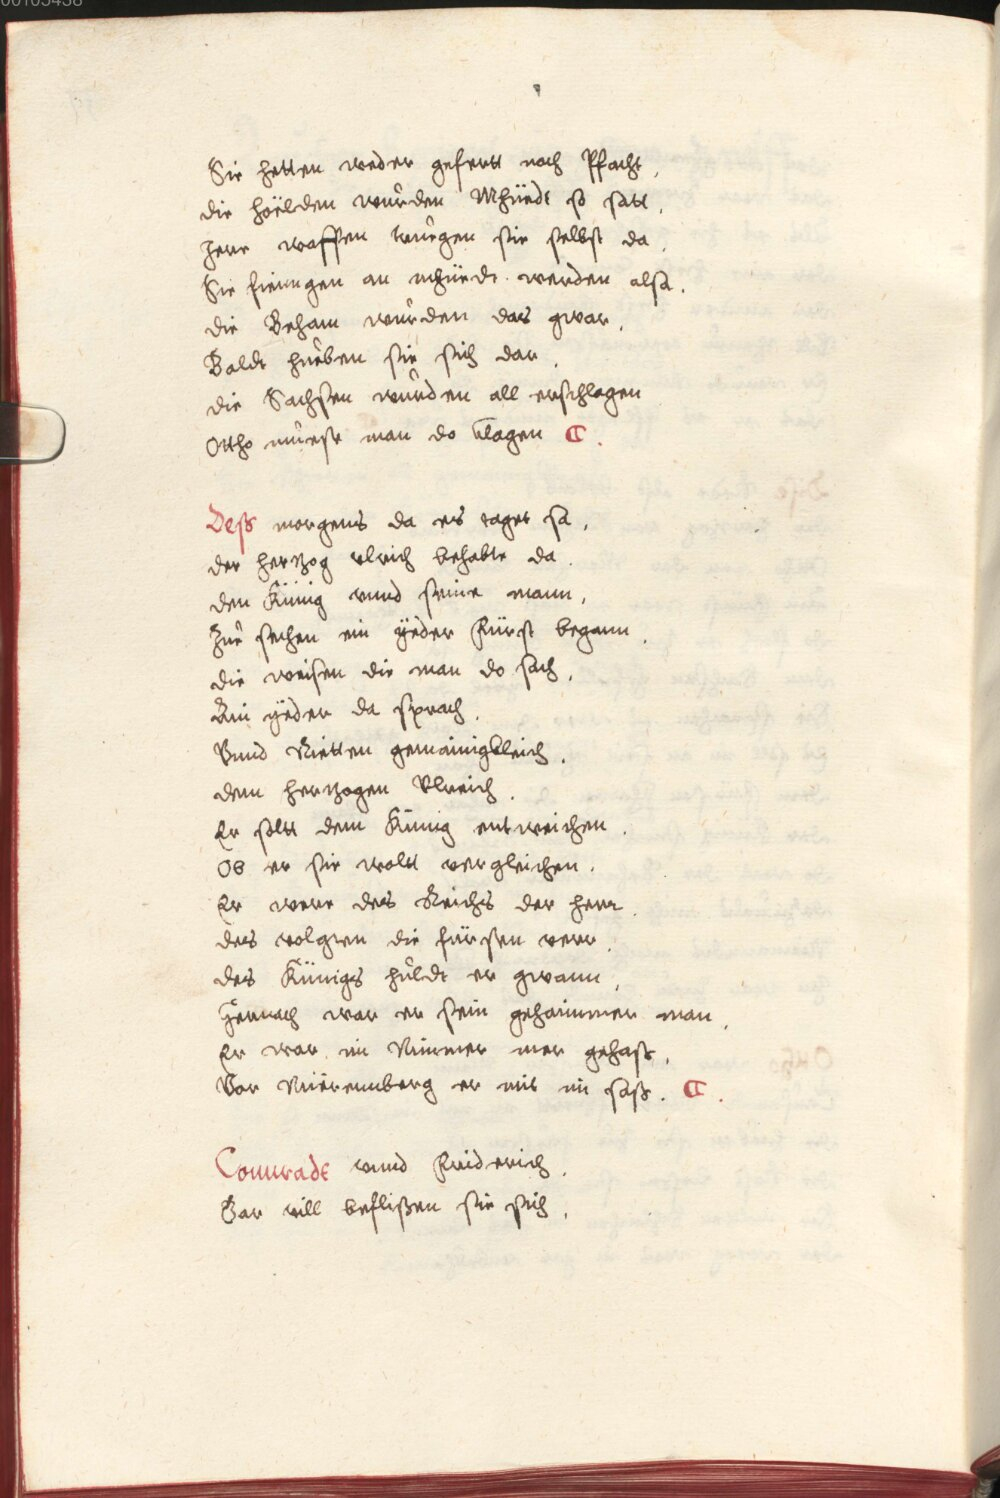 Sie hetten weder gefertt noch Pfacht,
die höelden wurden Mhüedt so satt,
Jerr waffen truegen sie selbst da,
Sie fienngen an mhüedt werden alsa.
die Beham wurden das gwar,
Baldt hueben sie sich dar,
die Sachsen wurden all erschlagen
Ottho muest man do klagen ¶.
Deß morgens da es taget sa,
der hertzog vlrich behabte da.
den Künig vnnd seine mann,
Zue sechen ein yeder Fürst begann.
die weisen die man do sach,
Ain yeder da sprach,
Vnnd Rietten gemainigkleich,
dem hertzogen Vlreich.
Er soltt dem Künig entweichen.
Ob er sie woltt vergleichen.
Er were des Reichs der herr.
des volgten die fürsten verr.
des Künigs huldt er gwann,
Hernach war er sein gehaimmer man,
Er war im Nimmer mer gehaß,
Vor Nüeremberg er mit im saß. ¶.
Connradt vnnd Friderich.
Gar vill beflißen sie sich,